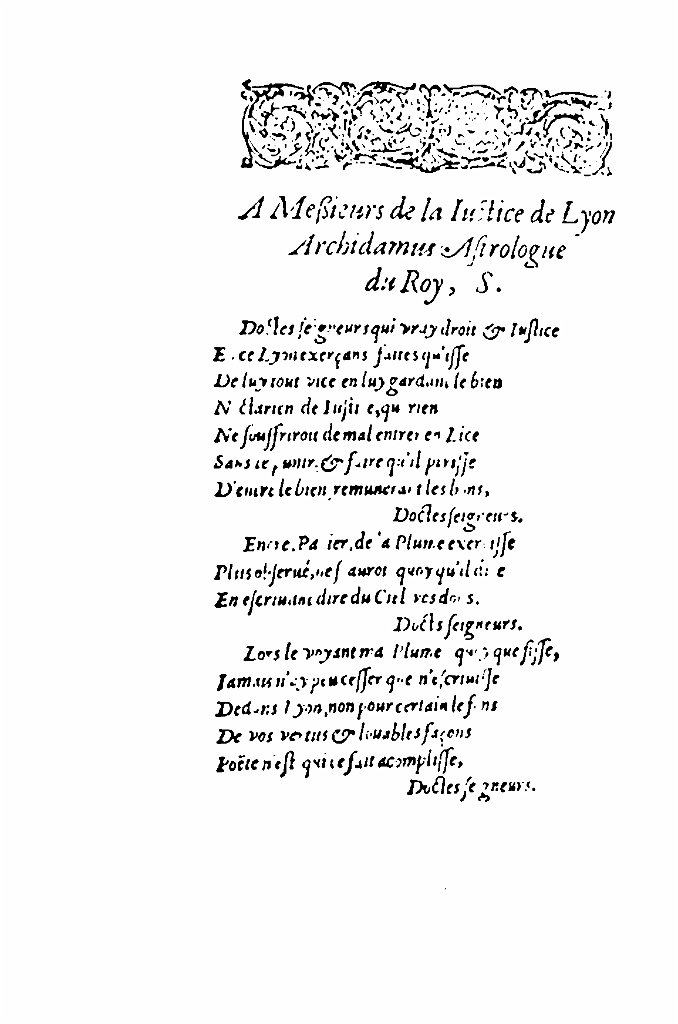 A Meßieurs de la Iuſtice de Lyon
Archidamus Aſtrologue
du Roy, S.
Doctes ſeigneurs qui vray droit & Iuſtice
E ce Lyon exerçans faites qu'iſſe
De luy tout vice en luy gardant le bien
N'éſtant en de rien
Ne ſouffrirott de mal entrer en Lice
Sans le punir, & faire qu'il periſſe
D'entre le bien remunerant les bons,
Doctes ſeigneurs.
Encre, Papier, de la Plume exerciſſe
Plus obſerué, ne ſaurot quoy qu'il die
En eſcriuant dire du Ciel vos dons.
Doctes ſeigneurs.
Lors le voyant ma Plume quoy que fiſſe,
Jamais n'ay peu ceſſer que n'eſcriuiſſe
Dedans Lyon, non pour certain le ſons
De vos vertus & louables façons
Poëte n'eſt qui ce fait acompliſſe,
Doctes ſeigneurs.